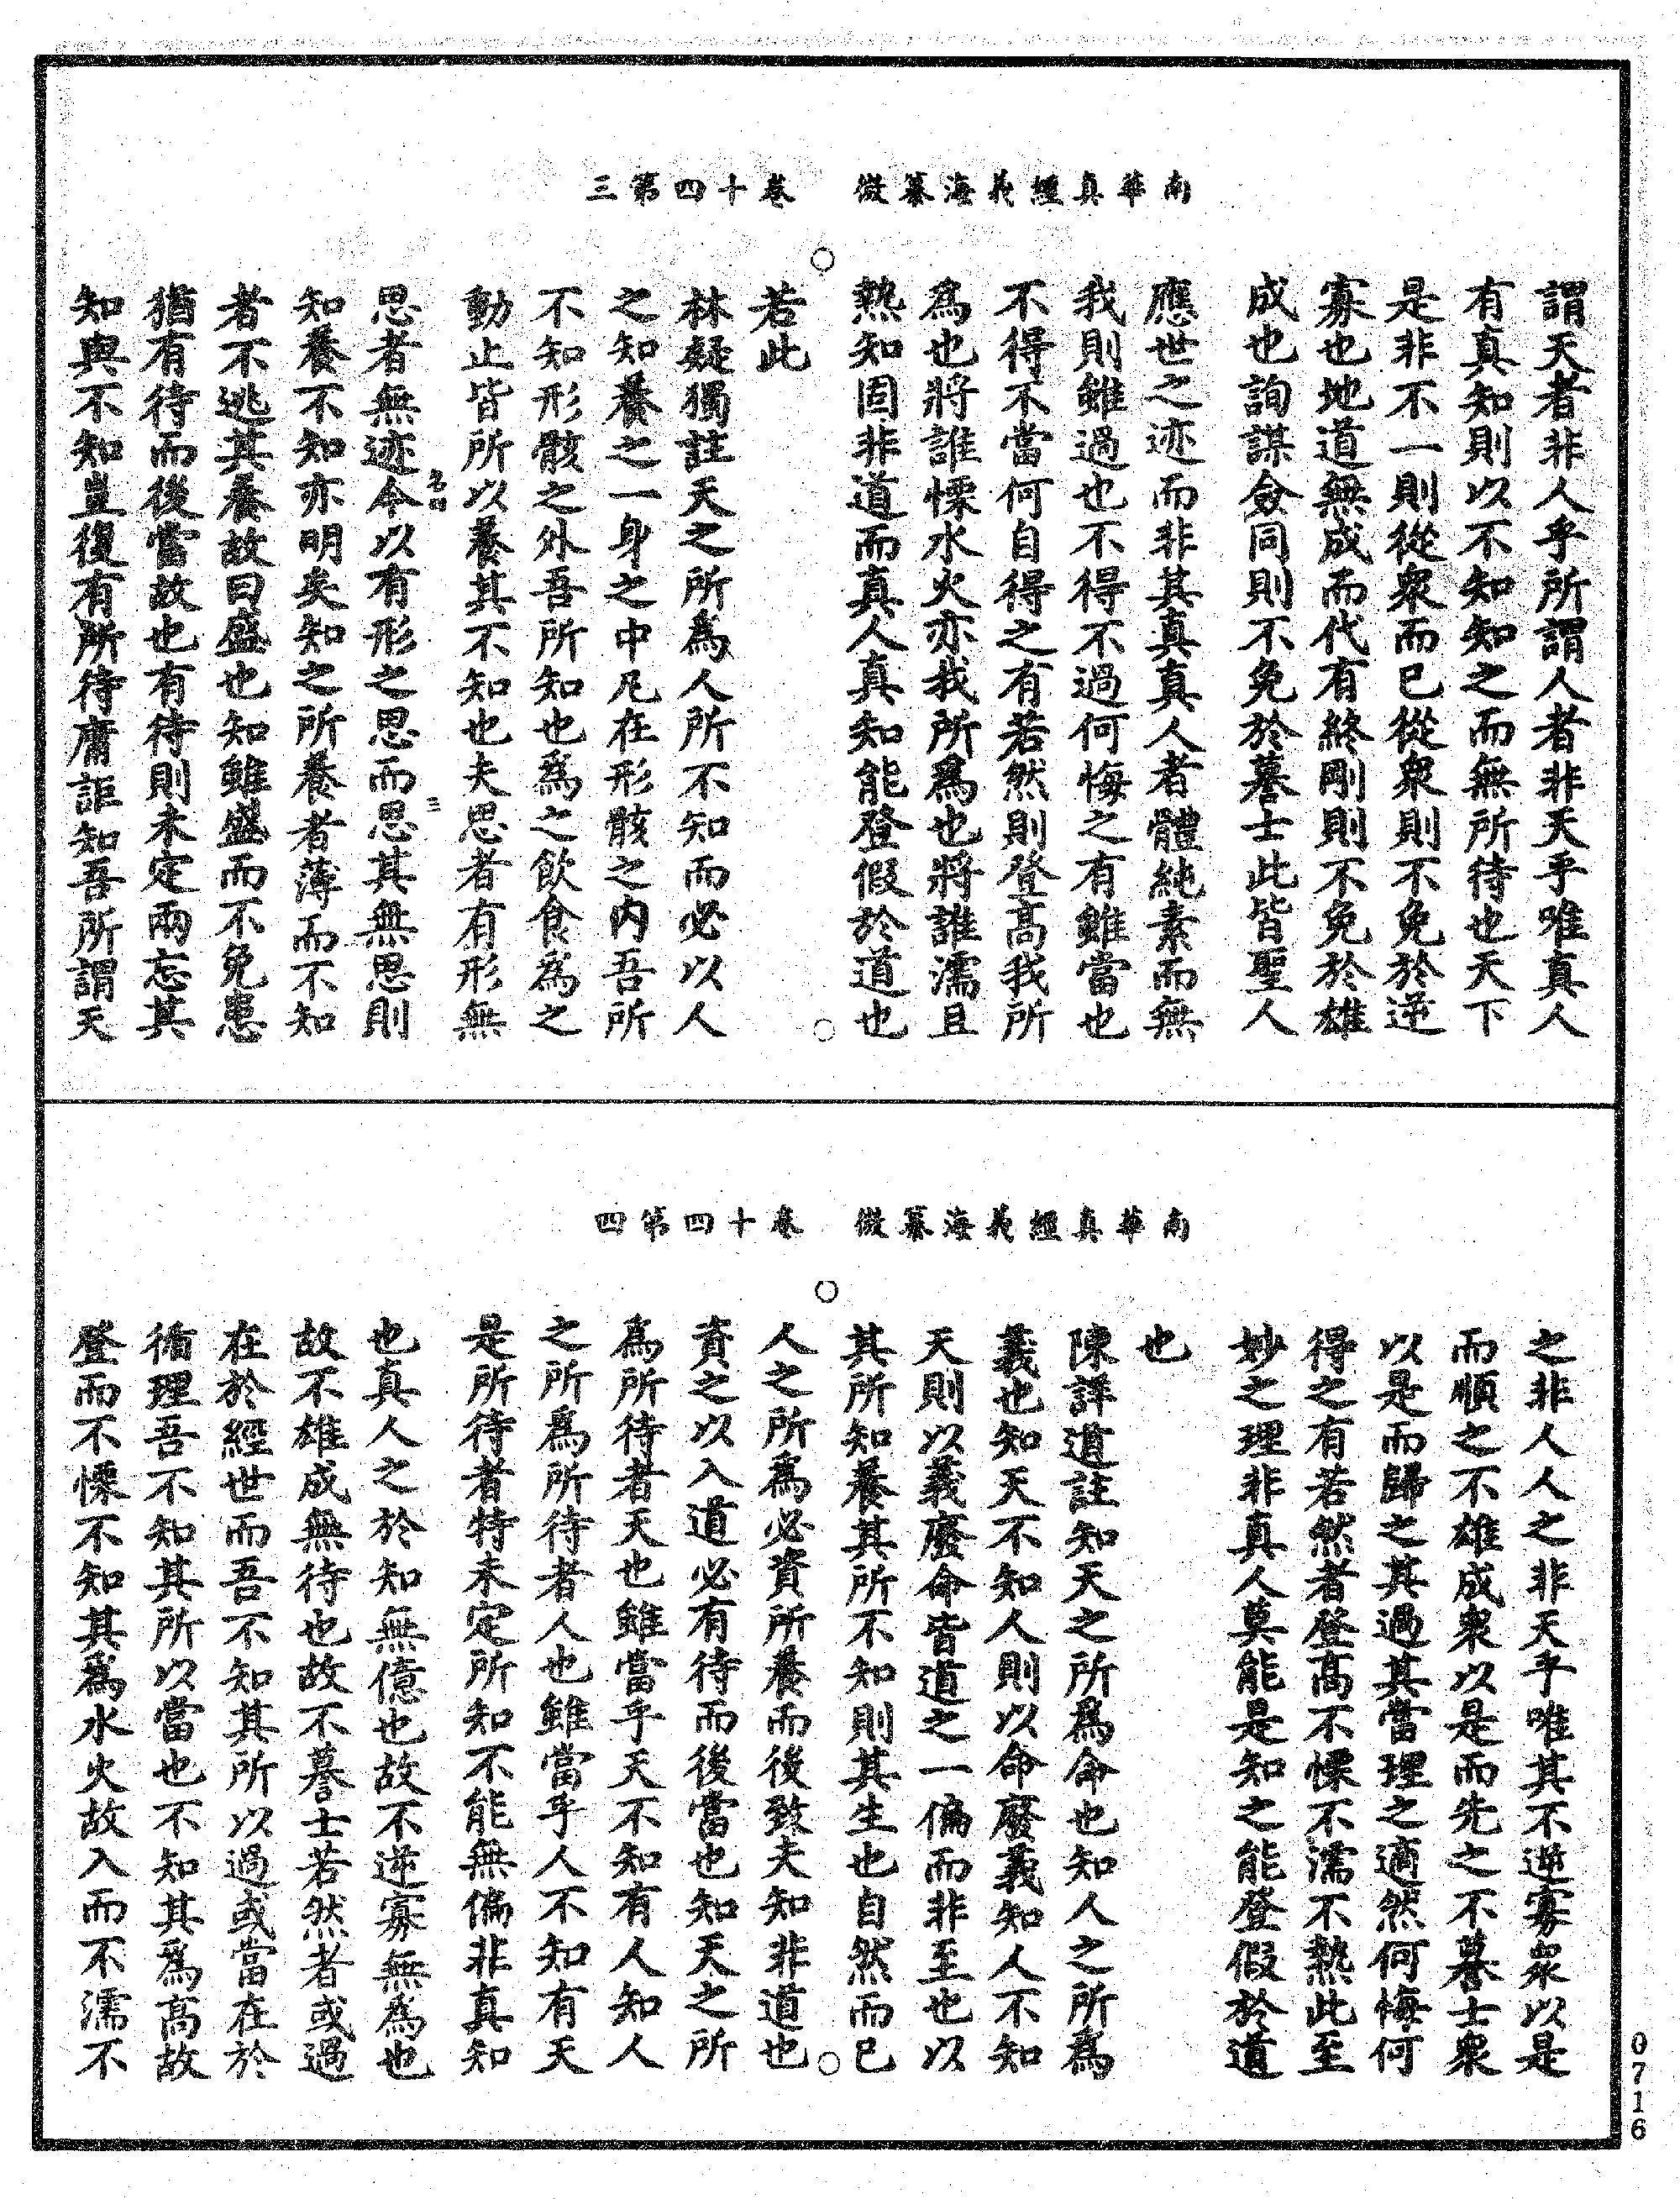 南華真經義海纂微　卷十四第三
謂天者非人乎所謂人者非天乎唯真人
有真知則以不知知之而無所待也天下
是非不一則從衆而已從衆則不免於逆
寡也地道無成而代有終剛則不免於雄
成也詢謀僉同則不免於謩士此皆聖人
應世之迹而非其真真人者體純素而無
我則雖過也不得不過何悔之有雖當也
不得不當何自得之有若然則登高我所
爲也將誰慄水火亦我所爲也將誰濡且
熱知固非道而真人真知能登假於道也
若此
林疑獨註天之所爲人所不知而必以人
之知養之一身之中凡在形骸之内吾所
不知形骸之外吾所知也爲之飲食爲之
動止皆所以養其不知也夫思者有形無
思者無迹今以有形之思而思其無思則
知養不知亦明矣知之所養者薄而不知
者不逃其養故曰盛也知雖盛而不免患
猶有待而後當故也有待則未定兩忘其
知與不知豈復有所待庸詎知吾所謂天
三
南華真經義海纂微　卷十四第四
之非人人之非天乎唯其不逆寡衆以是
而順之不雄成衆以是而先之不謩士衆
以是而歸之其過其當理之適然何悔何
得之有若然者登高不慄不濡不熱此至
妙之理非真人莫能是知之能登假於道
也
陳詳道註知天之所爲命也知人之所爲
義也知天不知人則以命廢義知人不知
天則以義廢命皆道之一偏而非至也以
其所知養其所不知則其生也自然而已
人之所爲必資所養而後致夫知非道也
資之以入道必有待而後當也知天之所
爲所待者天也雖當乎天不知有人知人
之所爲所待者人也雖當乎人不知有天
是所待者特未定所知不能無偏非真知
也真人之於知無億也故不逆寡無為也
故不雄成無待也故不謩士若然者或過
在於經世而吾不知其所以過或當在於
循理吾不知其所以當也不知其爲高故
登而不慄不知其爲水火故入而不濡不
0716